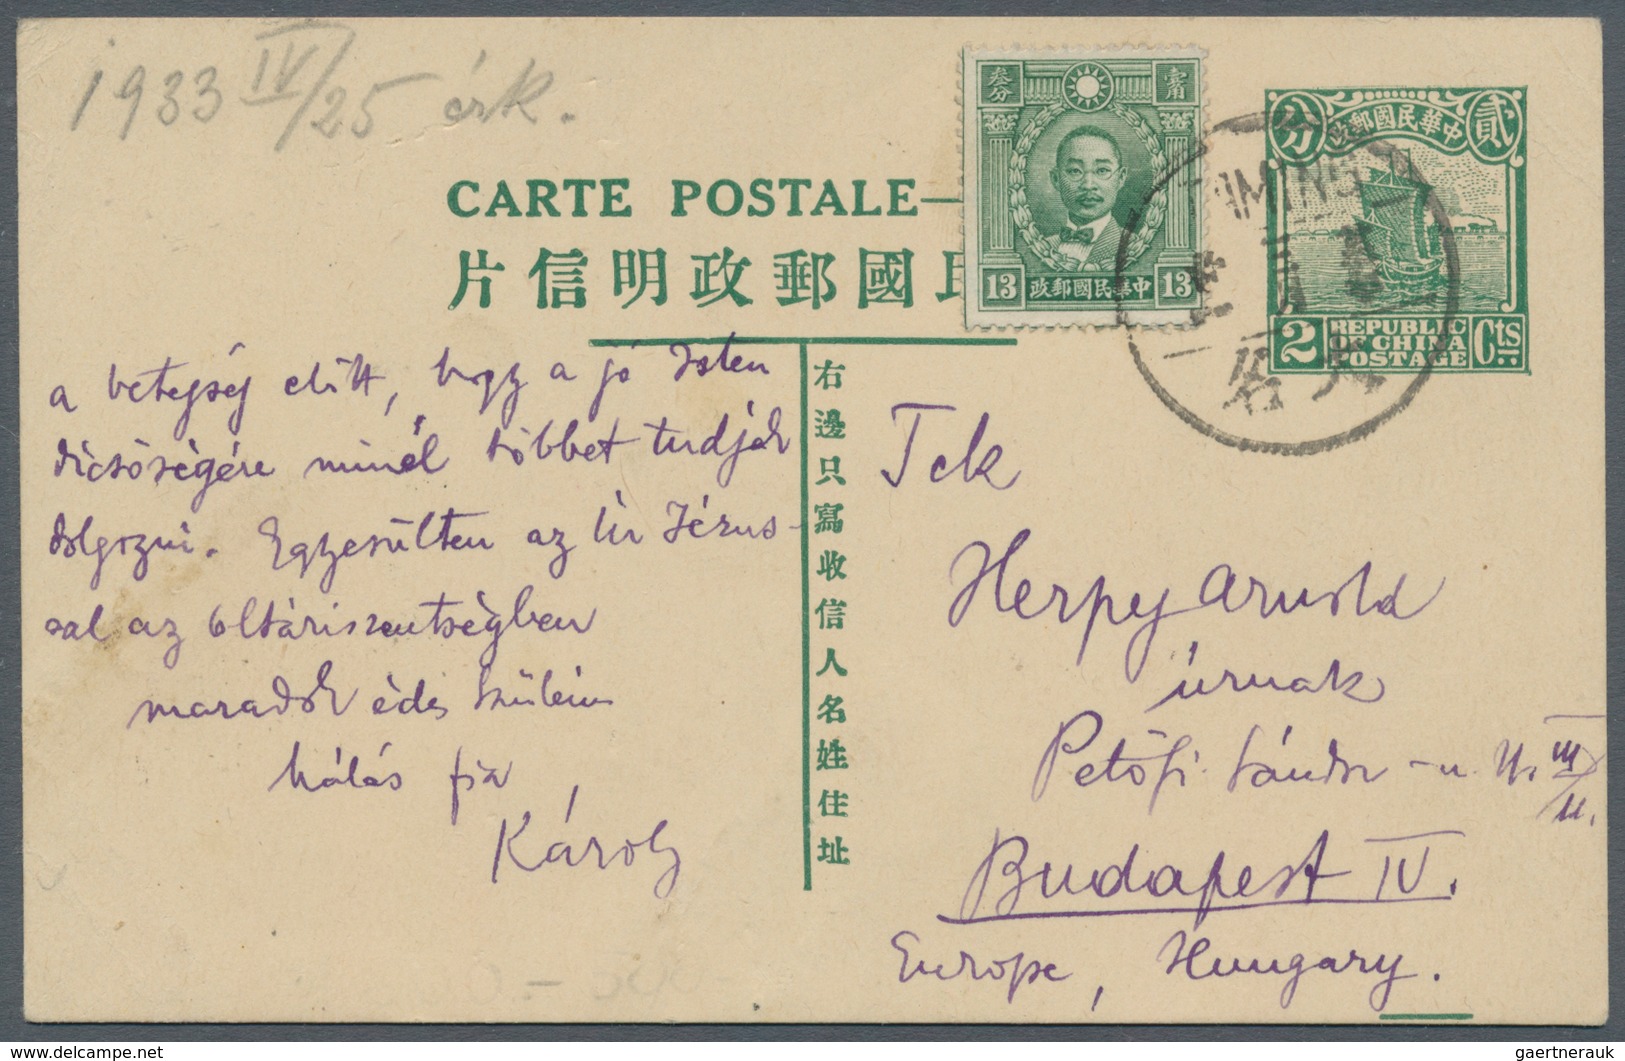 1933 IV/25 érk.
CARTE POSTALE
片信明政郵國民
叁分 壹角
13 政郵國民華中 13
分 政郵國民華中 貳
2 REPUBLIC OF CHINA POSTAGE Cts
TAMING
大名
a betegség előtt, hogy a jó Isten
dicsőségére minél többet tudjak
dolgozni. Egyesülten az Úr Jézus-
sal az Oltáriszentségben
maradok édes szüleim
hálás fia
Károly
右邊只寫收信人名姓住址
Tek
Herpey Arnold
úrnak
Petőfi Sándor-u. III/
Budapest IV.
Europe, Hungary.
delcampe.net
gaertnerauk